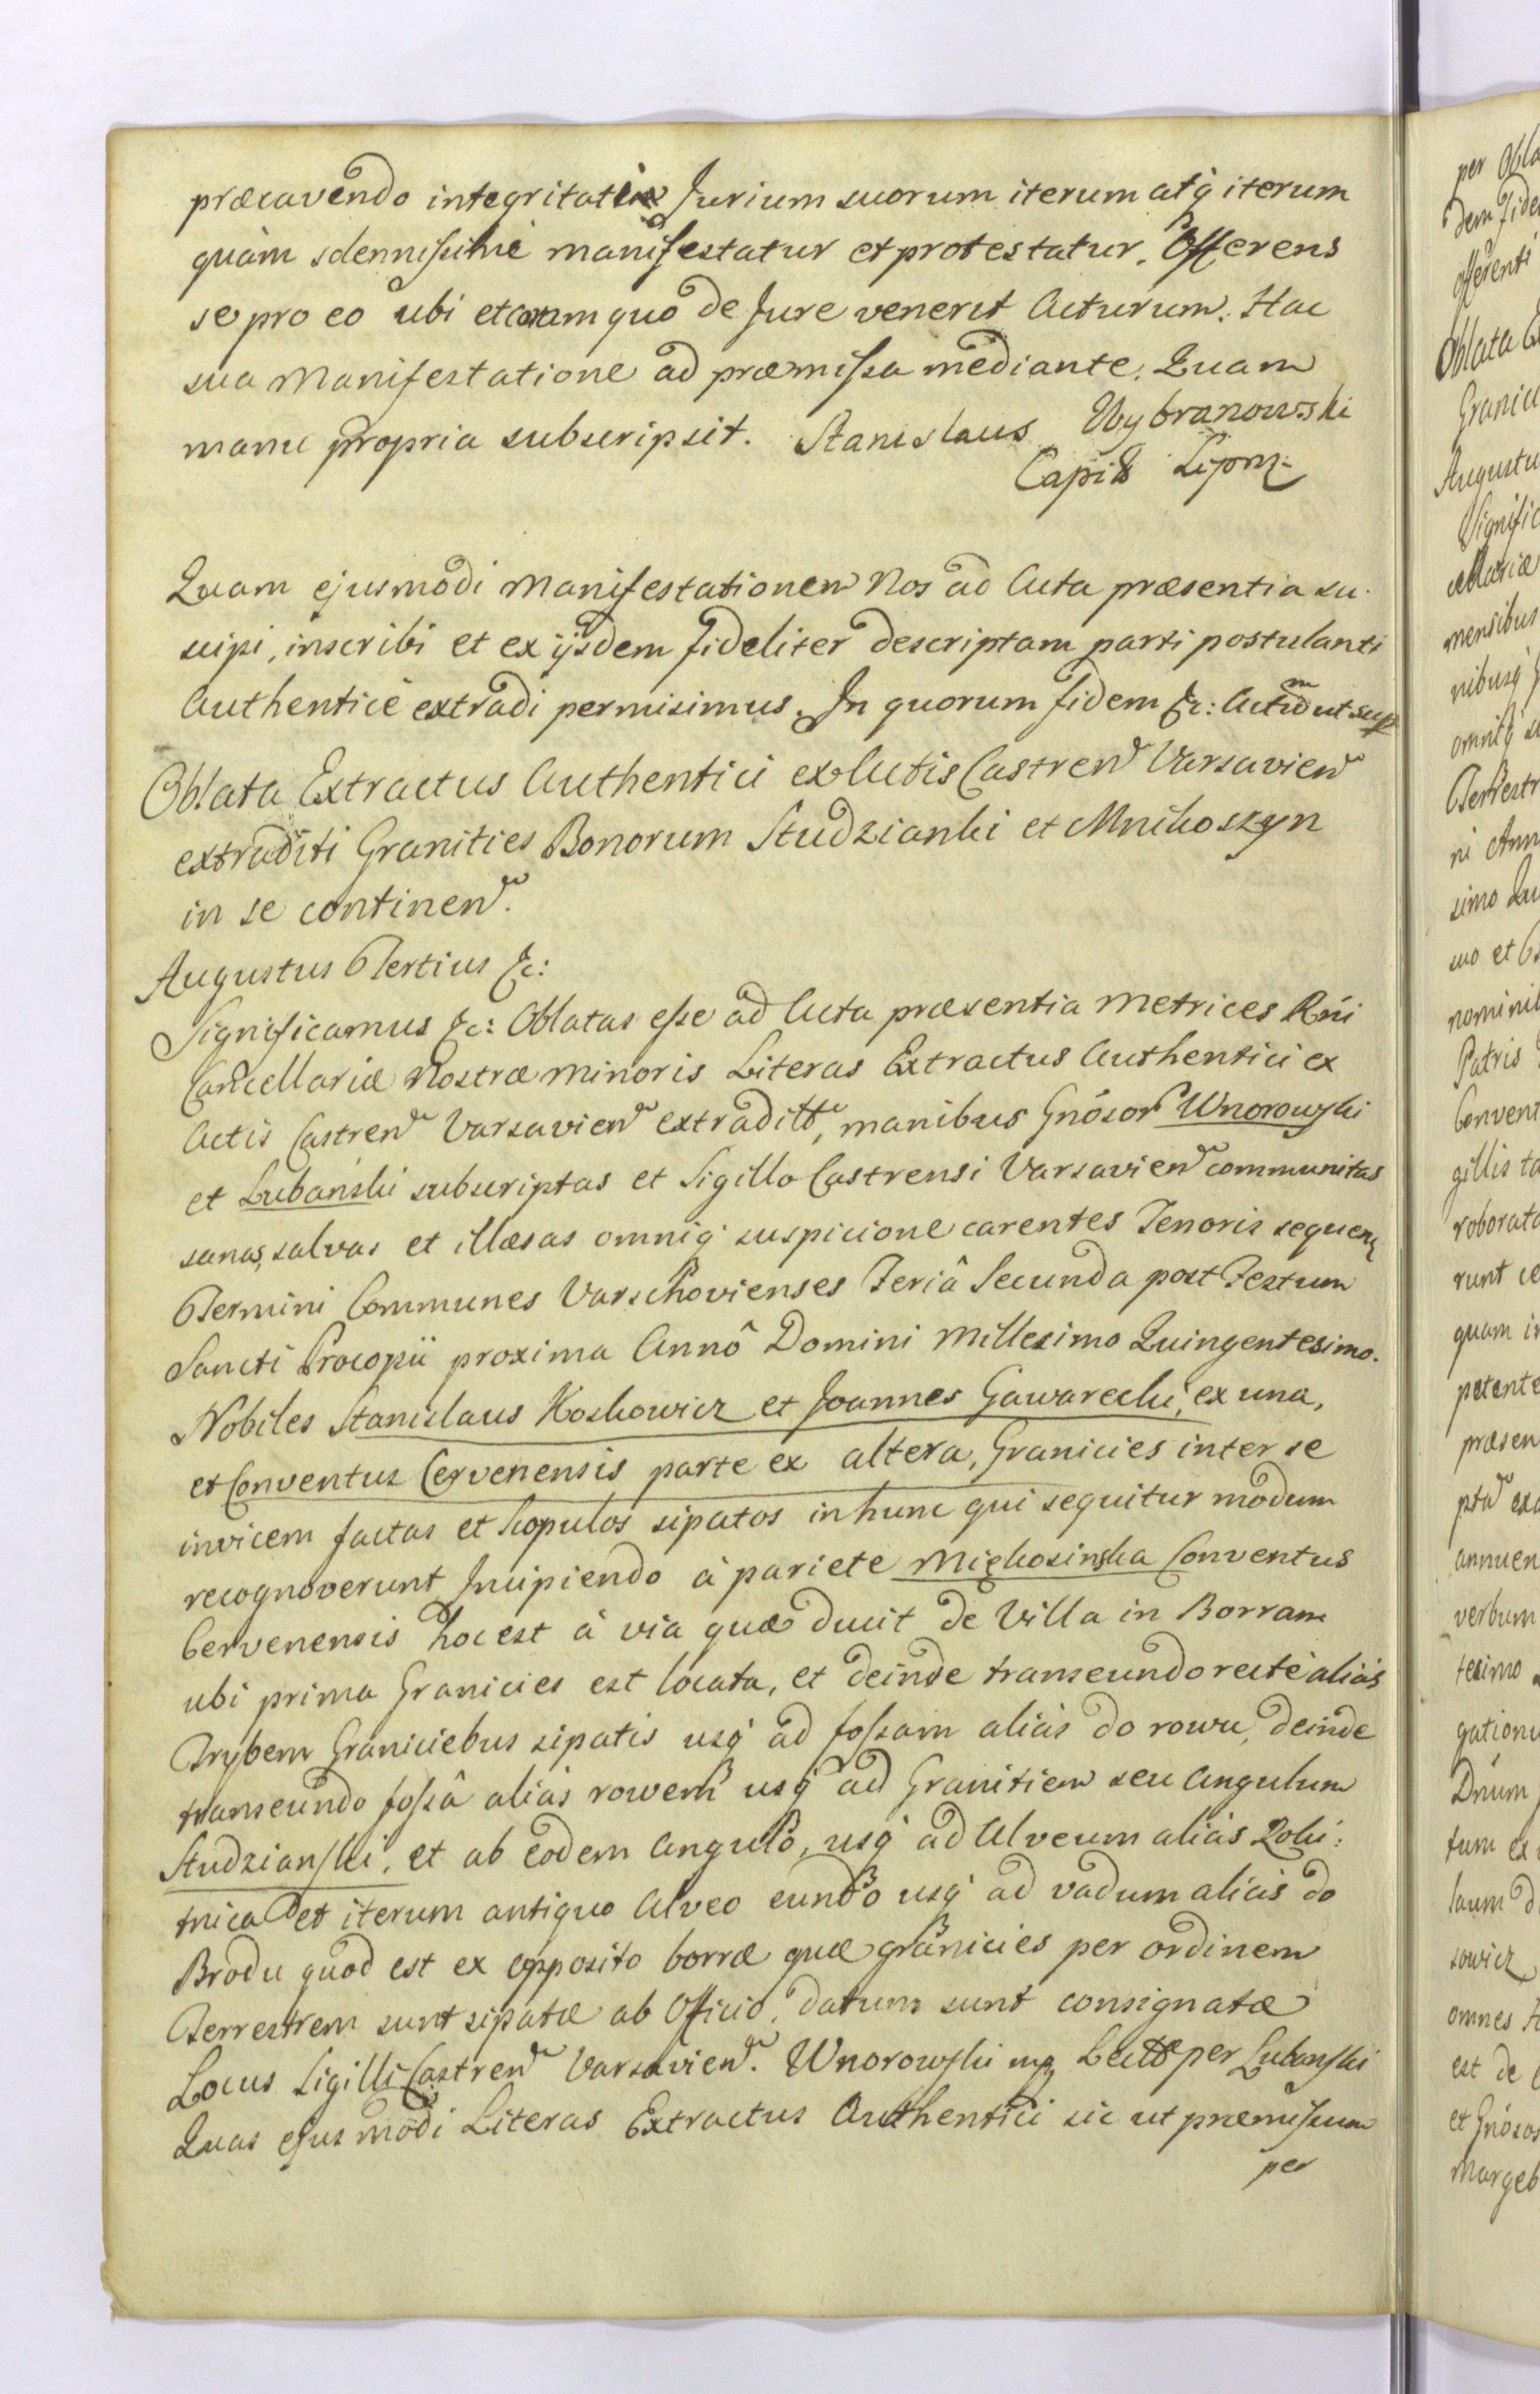 præcavendo integritati Jurium suorum iterum atq́ iterum
quàm solennissimè manifestatur et protestatur. Offerens
se pro eo ubi et coram quo de Jure venerit Acturum. Hac
sua Manifestatione ad præmissa mediante. Quam
manu propria subscripsit. Stanislaus Wybranowski
Capit Lipm:
Quam ejusmodi Manifestationem Nos ad Acta præsentia su-
scipi, inscribi et ex ijsdem fideliter descriptam parti postulanti
Authenticè extradi permisimus. In quorum fidem &c: Actum ut sup
Oblata Extractus Authentici ex Actis Castren Varsavien
extraditi Granities Bonorum Studzianki et Mnikoszyn
in se continen.
Augustus Tertius &c:
Significamus &c: Oblatas esse ad Acta præsentia Metrices Rńi
Cancellariæ Nostræ Minoris Literas Extractus Authentici ex
Actis Castren Varsavien extradit, manibus Gńosor Wnorowski
et Lubański subscriptas et Sigillo Castrensi Varsavien communitas
sanas, salvas et illæsas omniq́ suspicione carentes Tenoris sequen
Termini Communes Varschovienses Feriâ Secunda post Festum
Sancti Procopii proxima Annô Domini Millesimo Quingentesimo.
Nobiles Stanislaus Koskowicz et Joannes Gawarecki, ex una,
et Conventus Cervenensis parte ex altera, Granicies inter se
invicem factas et scopulos sipatos in hunc qui sequitur modum
recognoverunt Incipiendo à pariete Miękosinska Conventus
Cervenensis hoc est à via quæ ducit de Villa in Borram
ubi prima Granicies est locata, et deinde transeundo rectè aliás
Trybem Graniciebus sipatis usq́ ad fossam aliàs do rowu, deinde
transeundo fossâ aliàs rowem usq́ ad Granitiem seu Angulum
Studzianski, et ab eodem Angulo, usq́ ad Alveum aliàs Roki:
tnica et iterum antiquo Alveo eundo usq́ ad vadum aliàs do
Brodu quod est ex opposito borræ quæ granicies per ordinem
Terrestrem sunt sipatæ ab Officio, datum sunt consignatæ
Locus Sigilli Castren Varsavien. Wnorowski mp Lect per Lubanski
Quas ejusmodi Literas Extractus Authentici sic ut præmissum
per